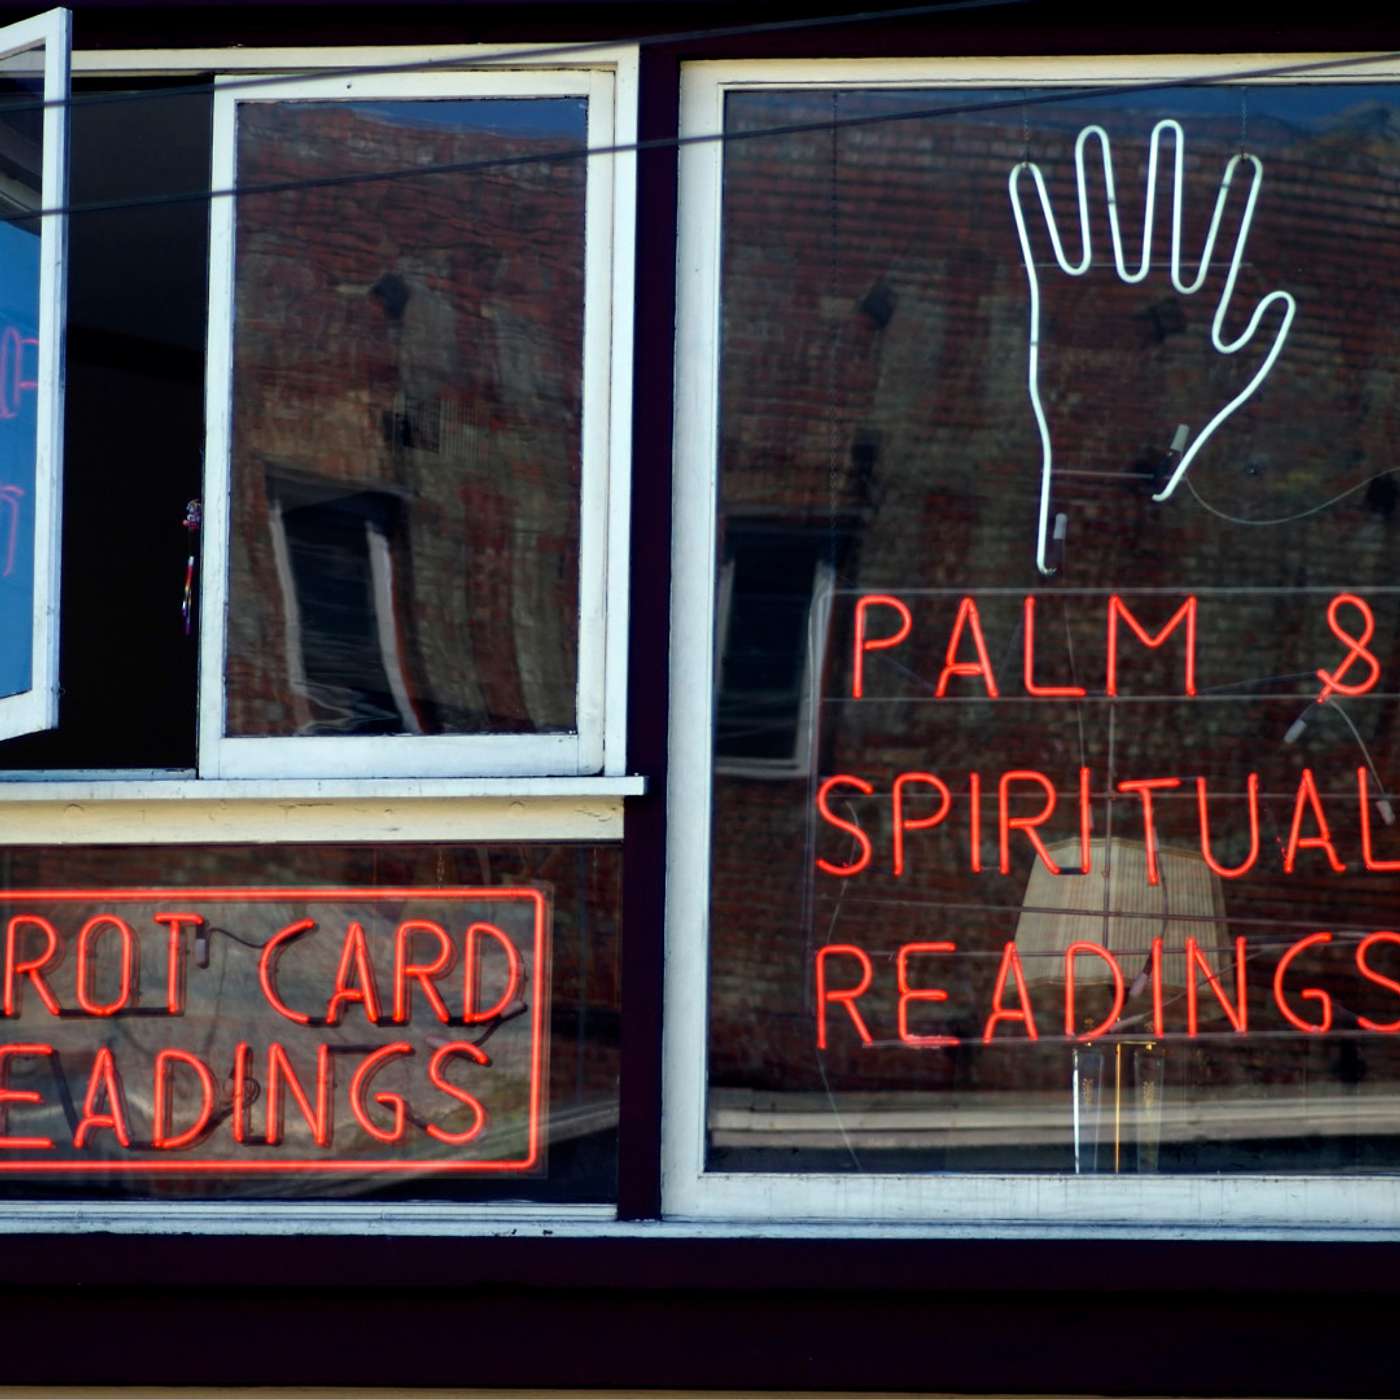 ROT CARD
EADINGS
PALM &
SPIRITUAL
READINGS